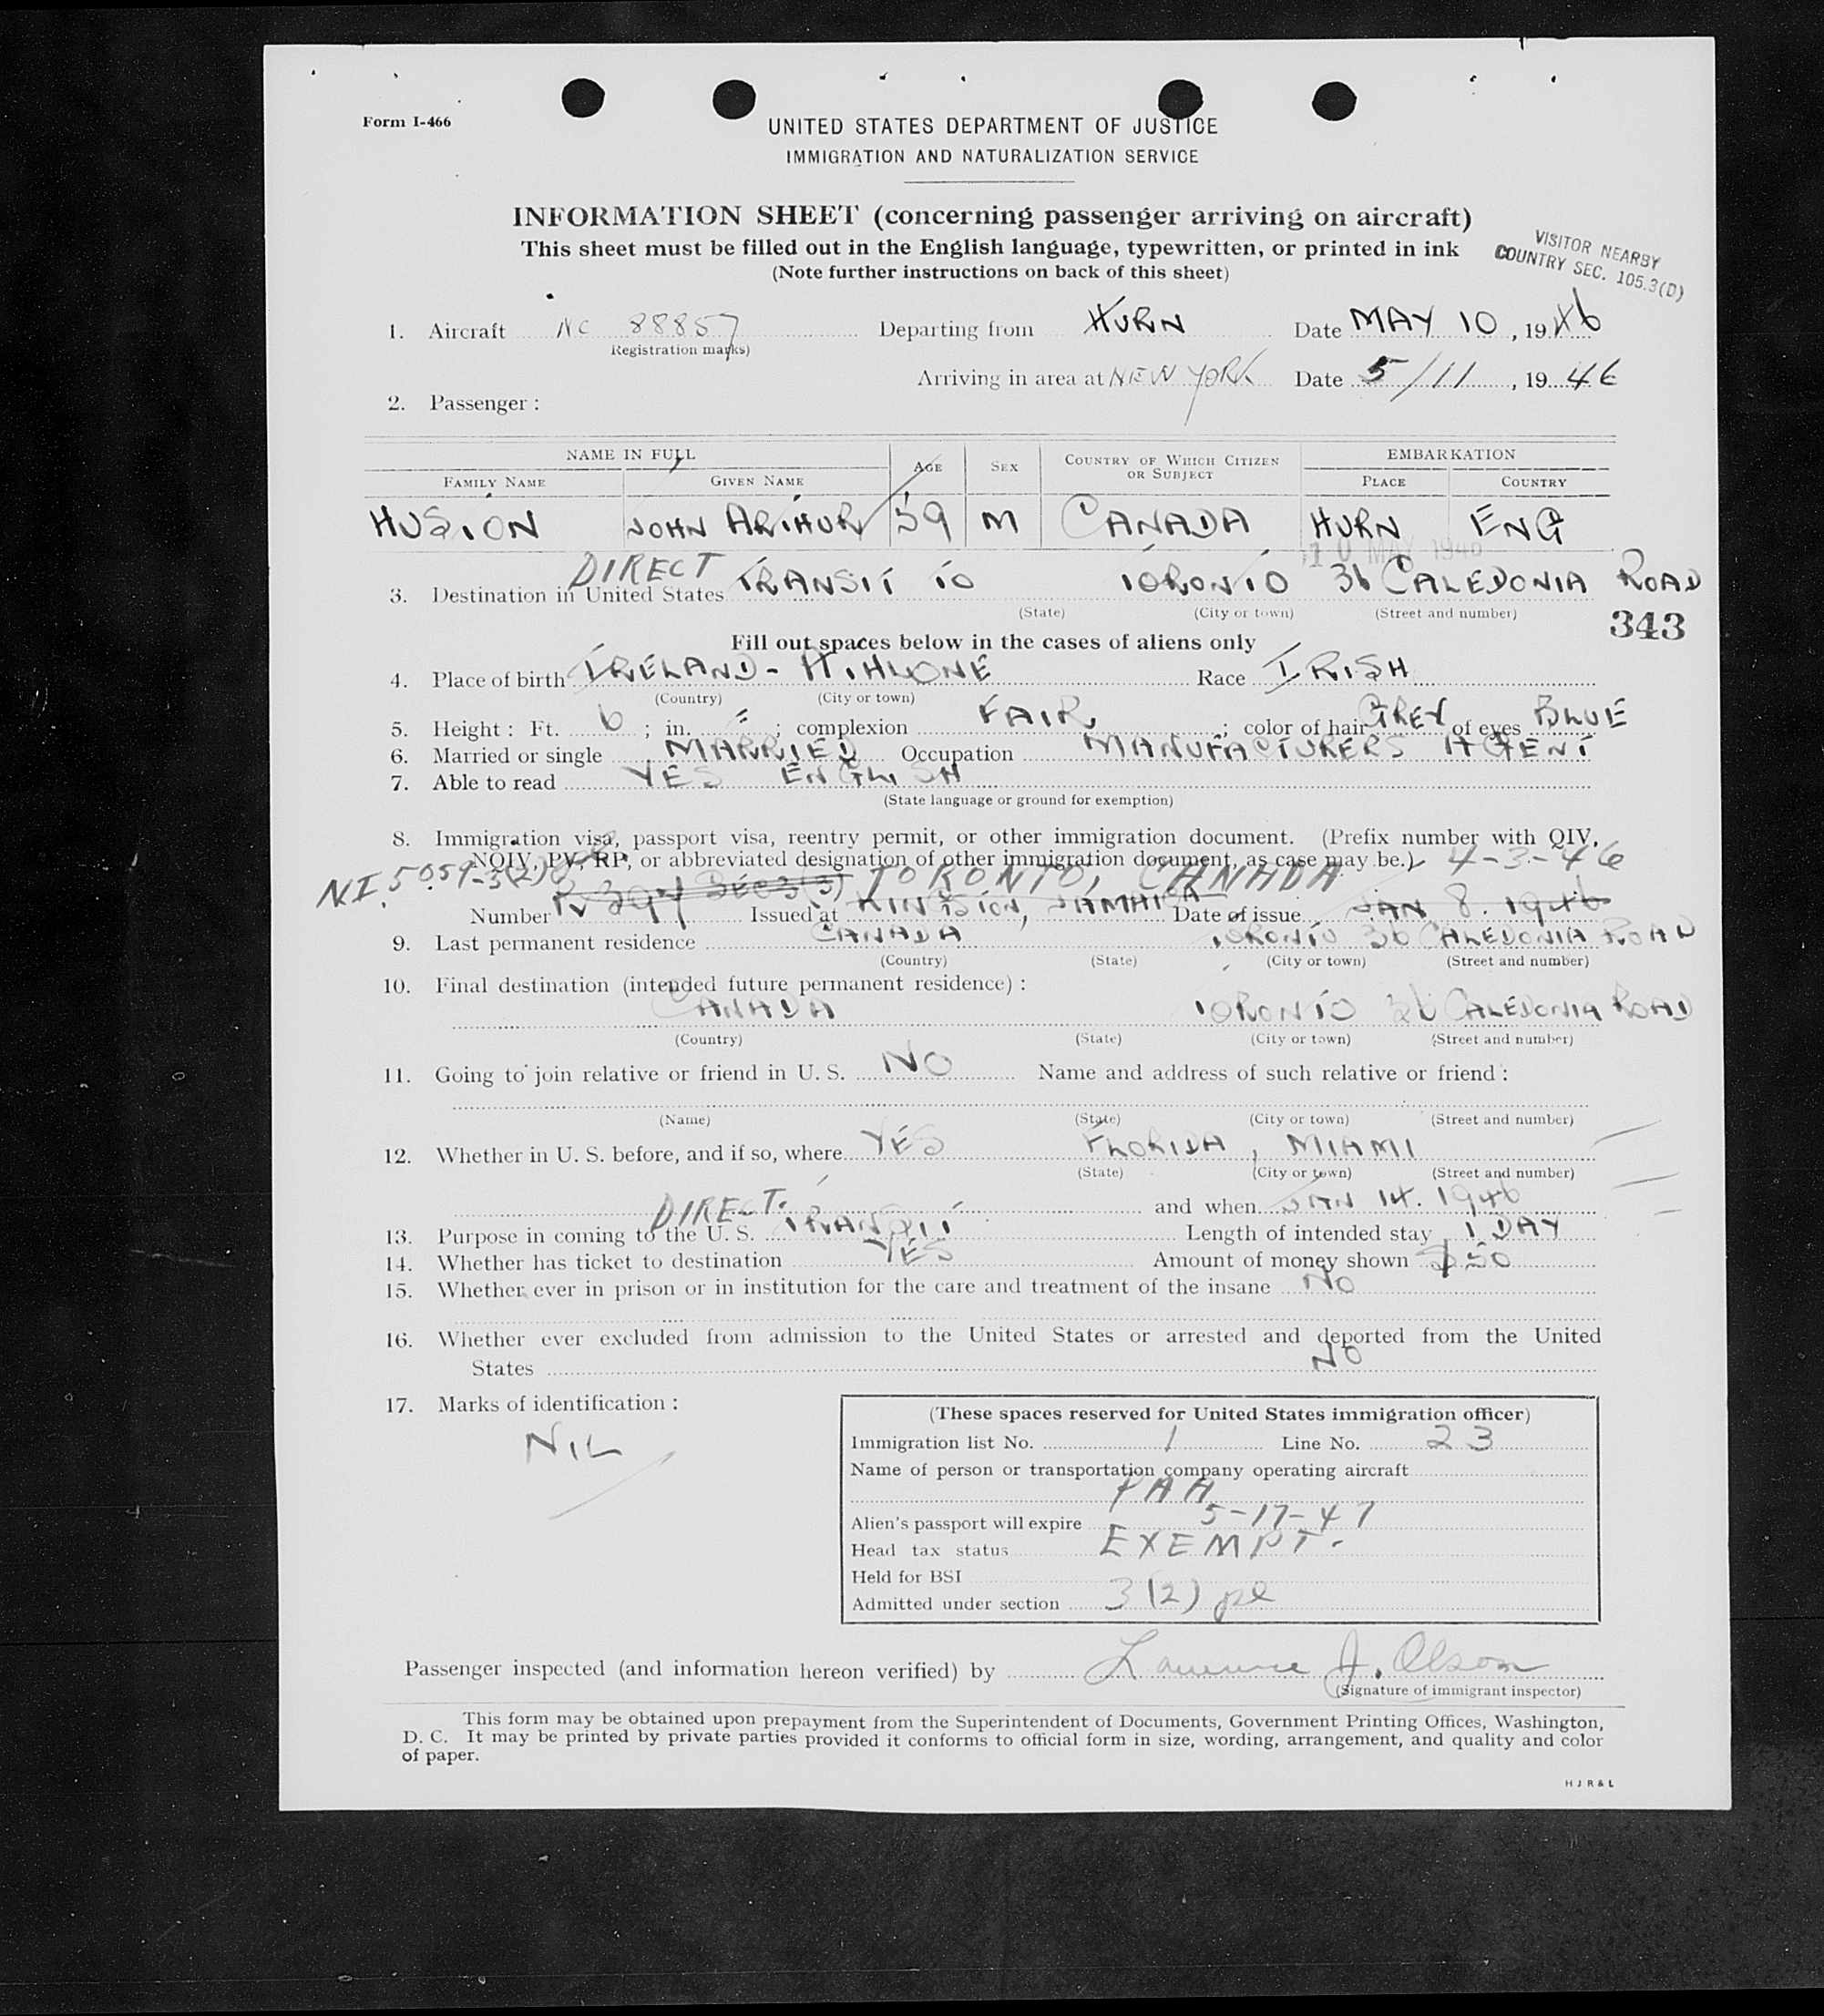 Form I-466
UNITED STATES DEPARTMENT OF JUSTICE
IMMIGRATION AND NATURALIZATION SERVICE
INFORMATION SHEET (concerning passenger arriving on aircraft)
This sheet must be filled out in the English language, typewritten, or printed in ink
(Note further instructions on back of this sheet)
VISITOR NEARBY
COUNTRY SEC. 105.3(D)
1. Aircraft NC 88857 Departing from HURN Date MAY 10, 1946
(Registration marks)
Arriving in area at NEW YORK Date 5/11, 1946
2. Passenger:
NAME IN FULL AGE SEX COUNTRY OF WHICH CITIZEN OR SUBJECT EMBARKATION
FAMILY NAME GIVEN NAME PLACE COUNTRY
HUSTON JOHN ARTHUR 59 M CANADA HURN ENG
10 MAY 1946
3. Destination in United States DIRECT TRANSIT TO TORONTO 36 CALEDONIA ROAD
(State) (City or town) (Street and number)
343
Fill out spaces below in the cases of aliens only
4. Place of birth IRELAND - ATHLONE Race IRISH
(Country) (City or town)
5. Height: Ft. 6; in. =; complexion FAIR; color of hair GREY of eyes BLUE
6. Married or single MARRIED Occupation MANUFACTURERS AGENT
7. Able to read YES ENGLISH
(State language or ground for exemption)
8. Immigration visa, passport visa, reentry permit, or other immigration document. (Prefix number with QIV,
NQIV, PV, RP, or abbreviated designation of other immigration document, as case may be.) 4-3-46
N.I. 5059-3(2) TORONTO, CANADA
Number PV 394 Sec 3(3) Issued at KINGSTON, JAMAICA Date of issue JAN 8. 1946
9. Last permanent residence CANADA TORONTO 36 CALEDONIA ROAD
(Country) (State) (City or town) (Street and number)
10. Final destination (intended future permanent residence):
CANADA TORONTO 36 CALEDONIA ROAD
(Country) (State) (City or town) (Street and number)
11. Going to join relative or friend in U. S. NO Name and address of such relative or friend:
(Name) (State) (City or town) (Street and number)
12. Whether in U. S. before, and if so, where YES FLORIDA, MIAMI
(State) (City or town) (Street and number)
and when JAN 14. 1946
13. Purpose in coming to the U. S. DIRECT TRANSIT Length of intended stay 1 DAY
14. Whether has ticket to destination YES Amount of money shown $50
15. Whether ever in prison or in institution for the care and treatment of the insane NO
16. Whether ever excluded from admission to the United States or arrested and deported from the United
States NO
17. Marks of identification:
NIL
(These spaces reserved for United States immigration officer)
Immigration list No. 1 Line No. 23
Name of person or transportation company operating aircraft
PAA
Alien's passport will expire 5-17-47
Head tax status EXEMPT.
Held for BSI
Admitted under section 3(2) pl
Passenger inspected (and information hereon verified) by Lawrence J. Olson
(Signature of immigrant inspector)
This form may be obtained upon prepayment from the Superintendent of Documents, Government Printing Offices, Washington,
D. C. It may be printed by private parties provided it conforms to official form in size, wording, arrangement, and quality and color
of paper.
H J R & L